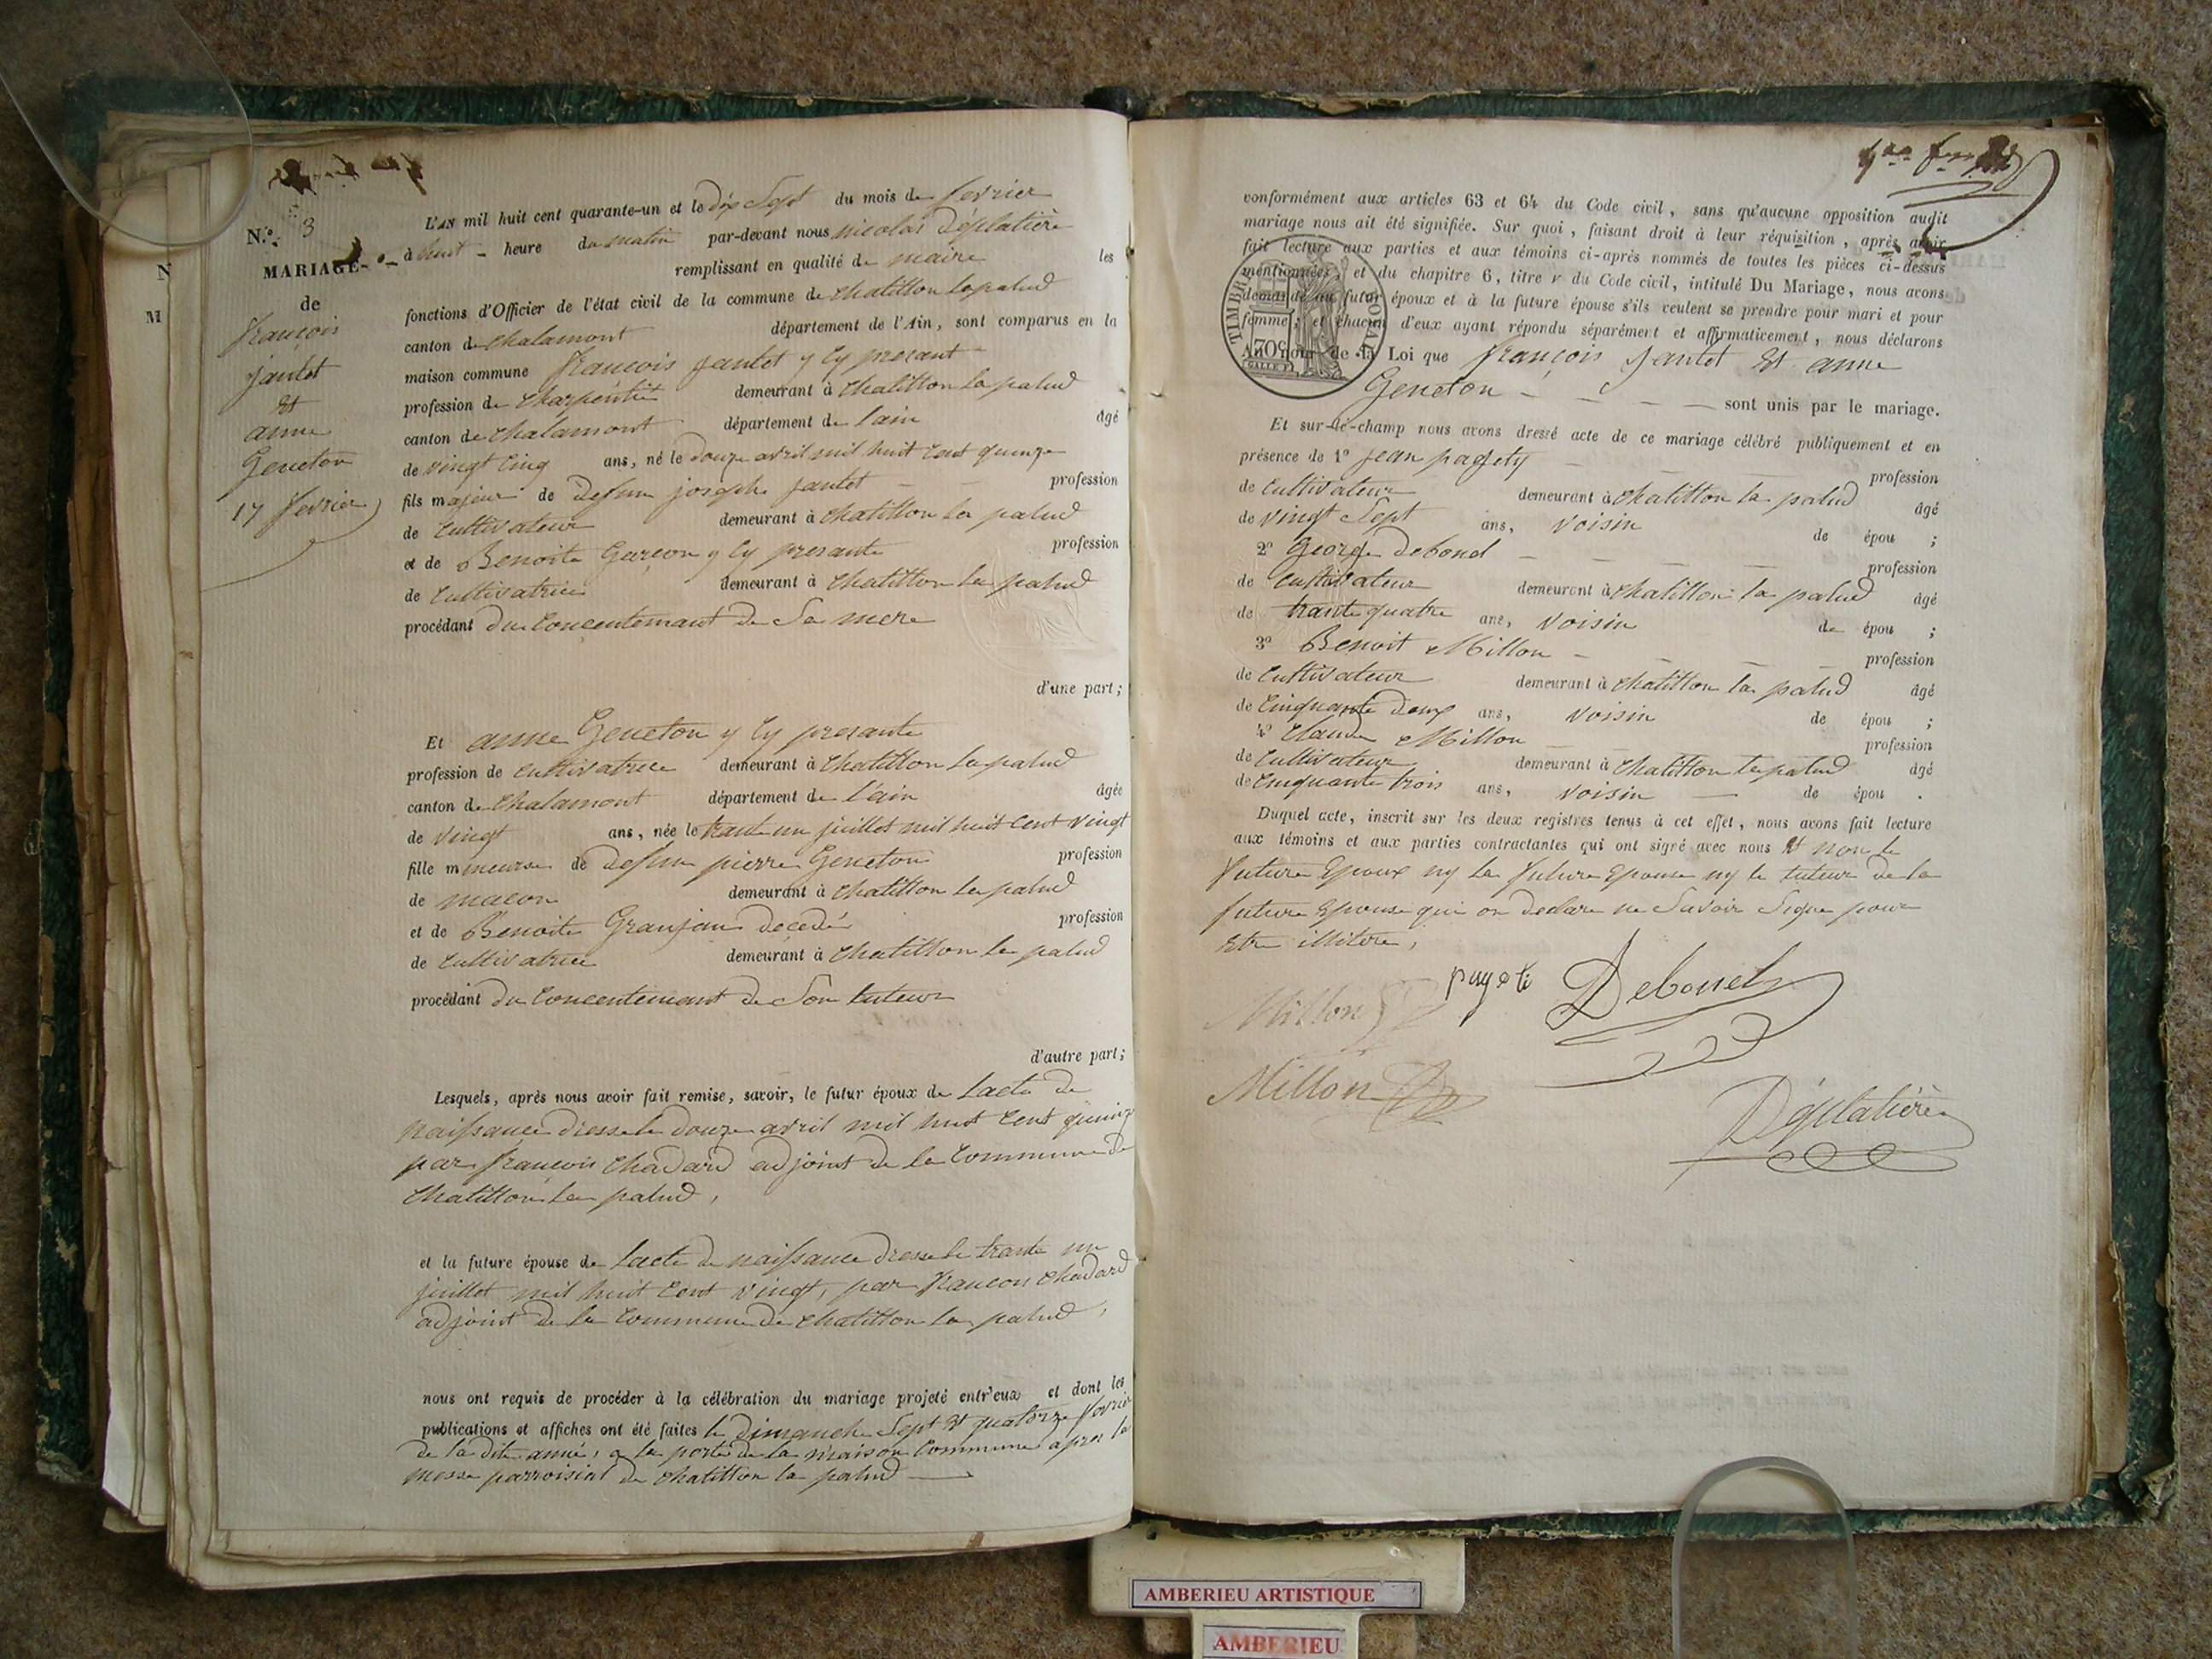 N.o 3
MARIAGE
de
françois
jantet
Et
anne
Geneton
17 fevrier
N
M
L'AN mil huit cent quarante-un et le dix Sept du mois de fevrier
à huit heure du matin par-devant nous nicolas Déplatière
remplissant en qualité de maire les
fonctions d'Officier de l'état civil de la commune de chatillon la palud
canton de chalamont département de l'Ain, sont comparus en la
maison commune françois jantet y cy presant
profession de charpentié demeurant à chatillon la palud
canton de chalamont département de l'ain âgé
de vingt cinq ans, né le douze avril mil huit cent quinze
fils majeur de defun joseph jantet profession
de cultivateur demeurant à chatillon la palud
et de Benoite Garçon y cy presante profession
de cultivatrice demeurant à chatillon la palud
procédant du concentemant de Sa mere
d'une part;
Et anne Geneton y cy presante
profession de cultivatrice demeurant à chatillon la palud
canton de chalamont département de l'ain âgée
de vingt ans, née le trante un juillet mil huit cent vingt
fille mineure de defun pierre Geneton profession
de macon demeurant à chatillon la palud
et de Benoite Granjean decedé profession
de cultivatrice demeurant à chatillon la palud
procédant du concentemant de Son tuteur
d'autre part;
Lesquels, après nous avoir fait remise, savoir, le futur époux de Lacte de
naissance dressé le douze avril mil huit cent quinze
par françois chadard adjoint de la commune de
chatillon la palud,
et la future épouse de Lacte de naissance dressé le trante un
juillet mil huit cent vingt, par francois chadard
adjoint de la commune de chatillon la palud,
nous ont requis de procéder à la célébration du mariage projeté entr'eux et dont les
publications et affiches ont été faites le Dimanche Sept Et quatorze fevrier
de la dite anné, a la porte de la maison commune apres la
messe parroisial de chatillon la palud
conformément aux articles 63 et 64 du Code civil, sans qu'aucune opposition audit
mariage nous ait été signifiée. Sur quoi, faisant droit à leur réquisition, après avoir
fait lecture aux parties et aux témoins ci-après nommés de toutes les pièces ci-dessus
mentionnées, et du chapitre 6, titre v du Code civil, intitulé Du Mariage, nous avons
demandé au futur époux et à la future épouse s'ils veulent se prendre pour mari et pour
femme; et chacun d'eux ayant répondu séparément et affirmativement, nous déclarons
Au nom de la Loi que françois jantet Et anne
Geneton sont unis par le mariage.
TIMBRE ROYAL
70c
Et sur-le-champ nous avons dressé acte de ce mariage célébré publiquement et en
présence de 1o jean pagety profession
de cultivateur demeurant à chatillon la palud âgé
de vingt Sept ans, voisin de épou ;
2o George Debonel profession
de cultivateur demeurant à chatillon la palud âgé
de trante quatre ans, voisin de épou ;
3o Benoit Millon profession
de cultivateur demeurant à chatillon la palud âgé
de cinquante deux ans, voisin de épou ;
4o claude Millon profession
de cultivateur demeurant à chatillon la palud âgé
de cinquante trois ans, voisin de épou .
Duquel acte, inscrit sur les deux registres tenus à cet effet, nous avons fait lecture
aux témoins et aux parties contractantes qui ont signé avec nous Et non le
future Epoux ny la future Epouse ny le tuteur de la
future Epouse qui on declare ne Savoir Signe pour
etre illitere,
Millon pagete Debonel
Millon
Déplatière
AMBERIEU ARTISTIQUE
AMBERIEU